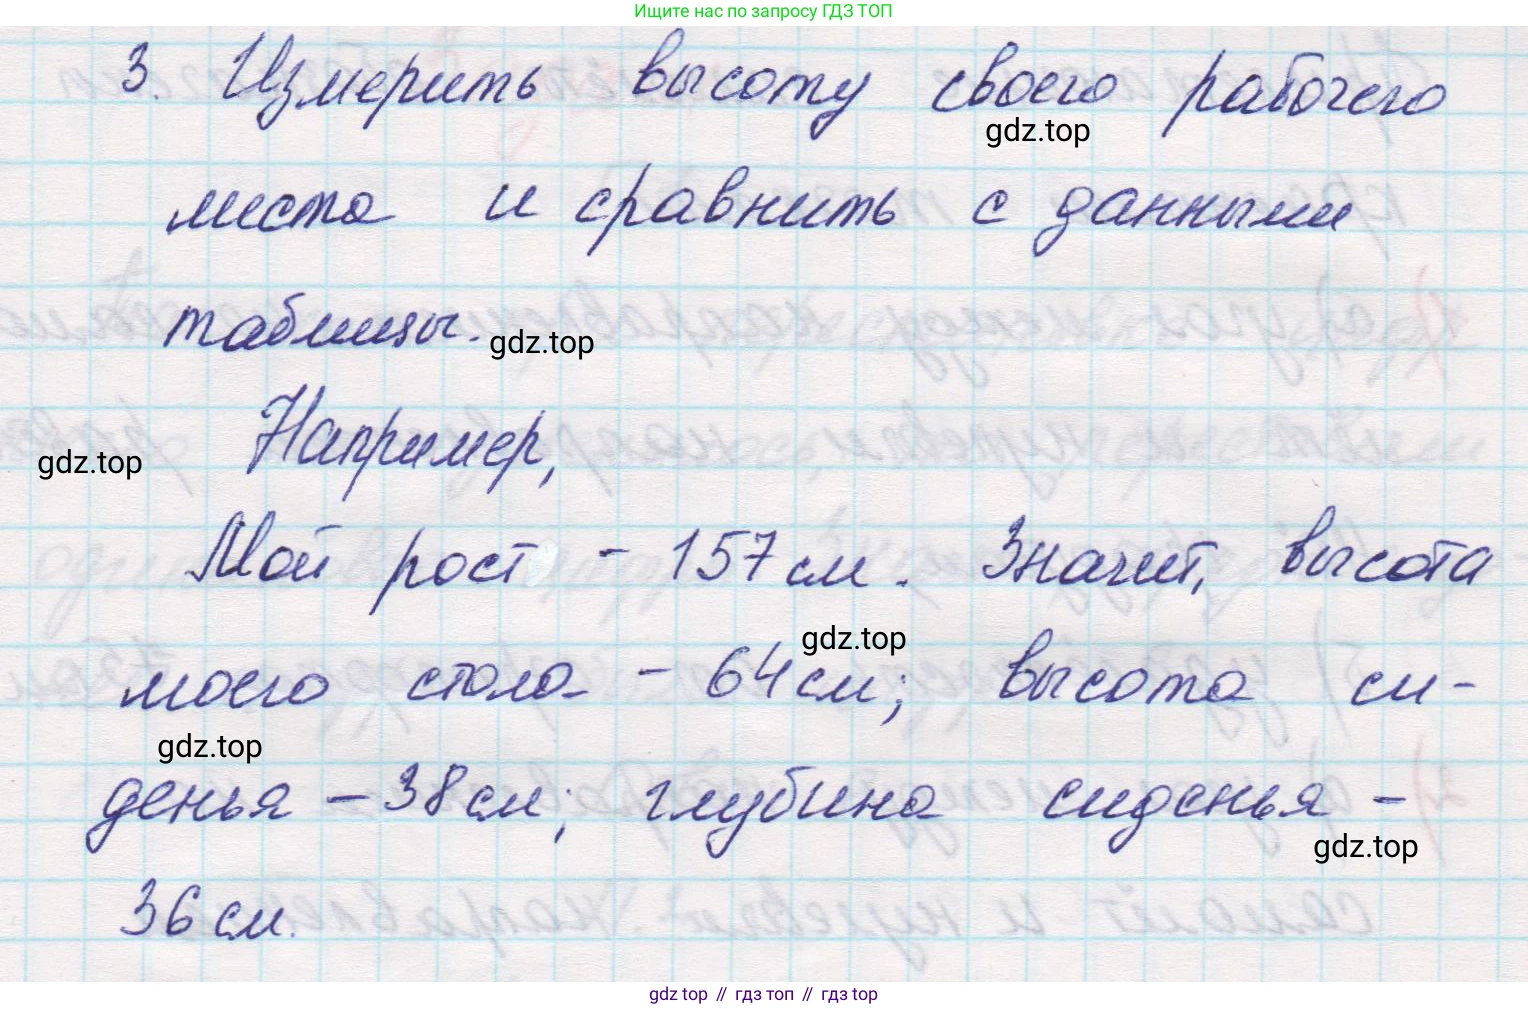 Ищите нас по запросу ГДЗ ТОП
3. Измерить высоту своего рабочего
gdz.top
места и сравнить с данными
таблицы.
gdz.top
Например,
gdz.top
Мой рост - 157 см. Значит, высота
gdz.top
моего стола - 64 см; высота си-
gdz.top
денья - 38 см; глубина сиденья -
gdz.top
36 см.
gdz top // гдз топ // гдз top